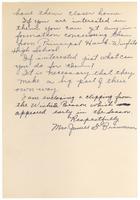 have them closer home
If you are interested in
them you can get any in-
formation concerning them
from Principal
High School.
If interested just what can
you do for them?
It is necessary that they
make a big part of their
own way.
I am enclosing a clipping from
the Winfield
appeared early in the season
Respectfully
Mrs James S.